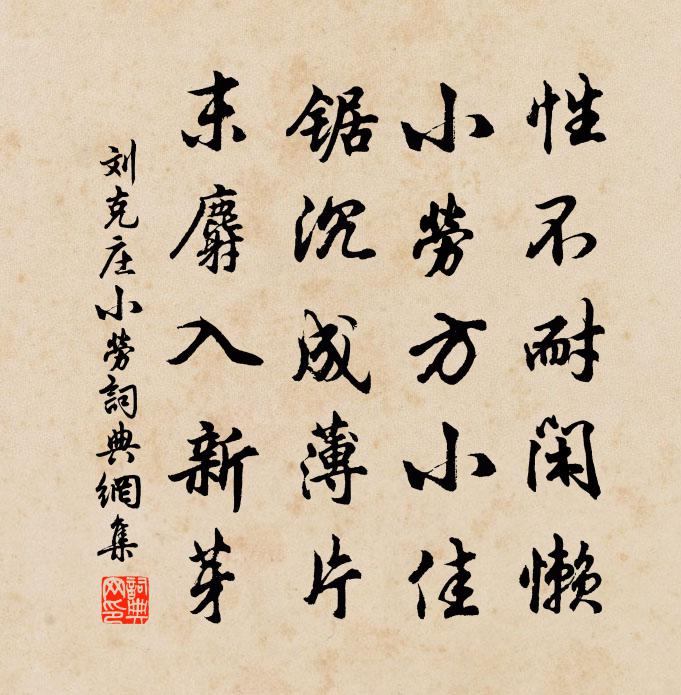 性不耐闲懒
小劳方小佳
锯沉成薄片
末麝入新芽
刘克庄小劳詞典網集
詞典網印